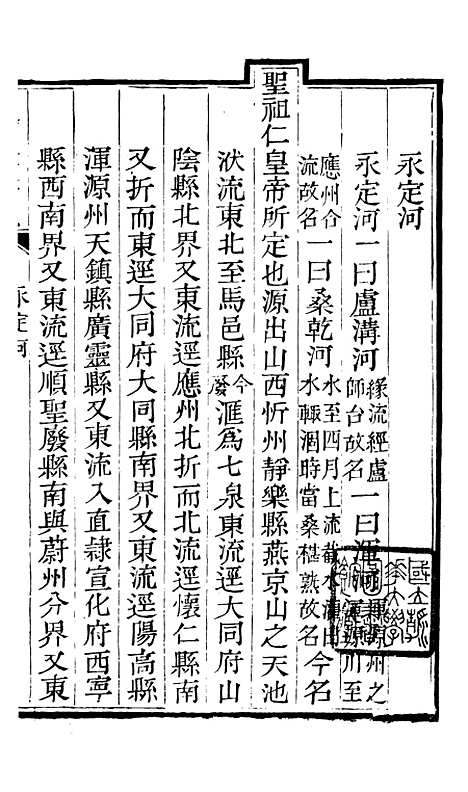 永定河
永定河一曰盧溝河緣流經盧師台故名一曰渾河源州之川至
應州合流故名一曰桑乾河水至四月上流水水輒涸時當桑椹熟故名今名
聖祖仁皇帝所定也源出山西忻州靜樂縣燕京山之天池
洑流東北至馬邑縣今廢滙爲七泉東流逕大同府山
陰縣北界又東流逕應州北折而北流逕懷仁縣南
又折而東逕大同府大同縣南界又東流逕陽高縣
渾源州天鎮縣廣靈縣又東流入直隸宣化府西寧
縣西南界又東流逕順聖廢縣南與蔚州分界又東
永定河